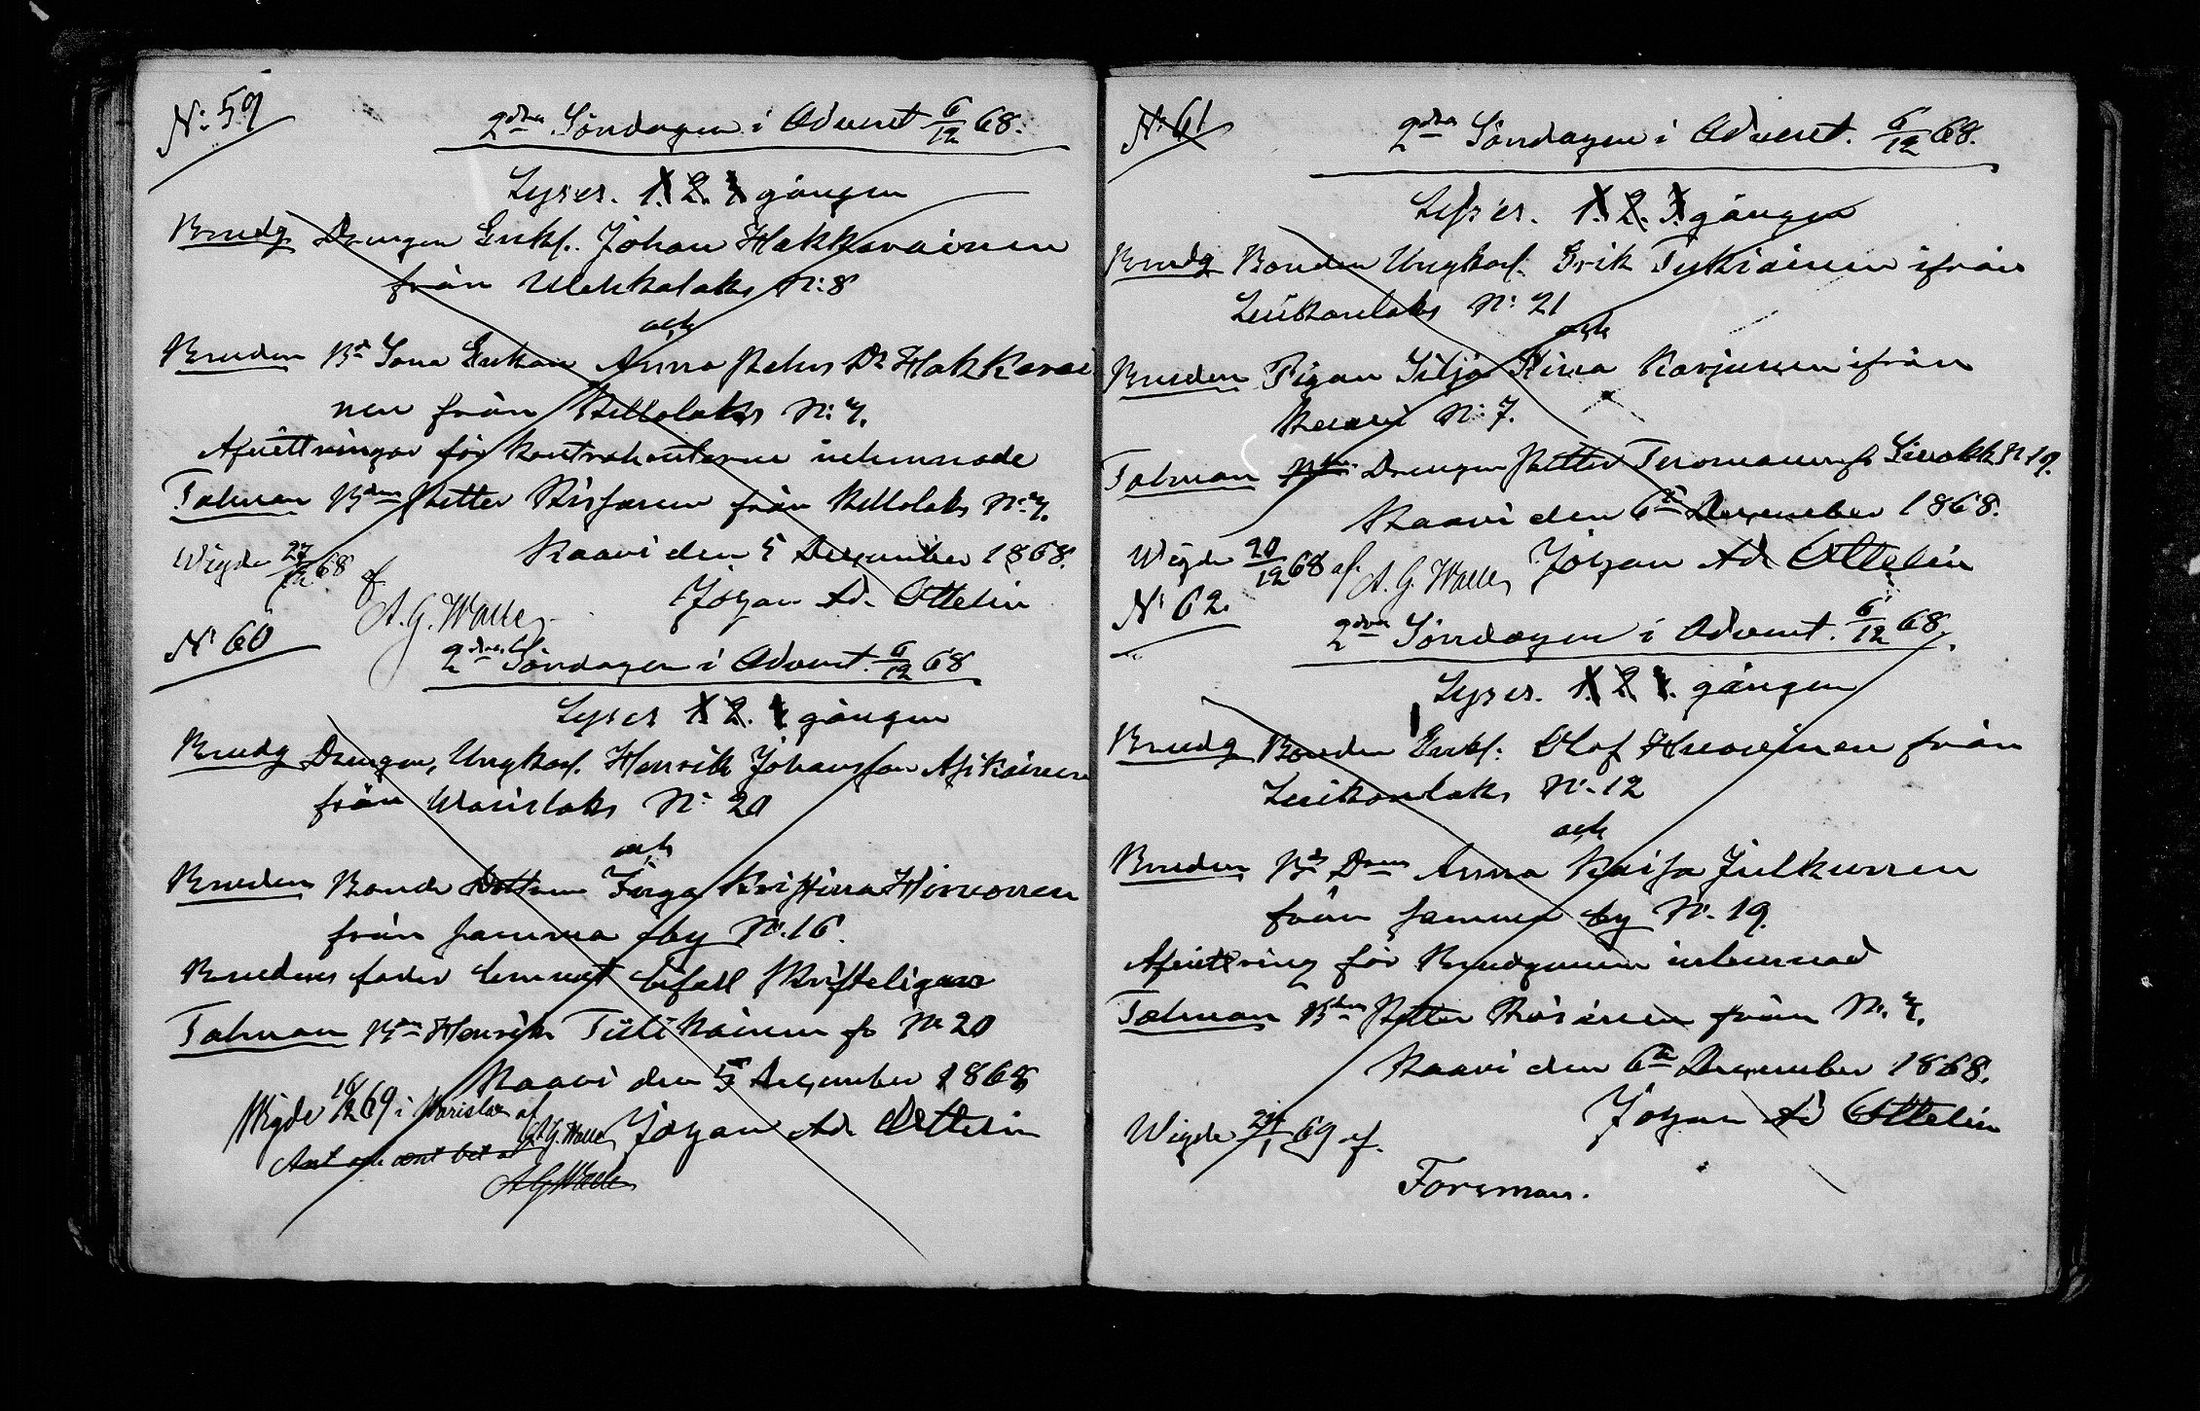 N: 59
2dra Söndagen i Advent 6/12 68.
Lyses. 1. 2. 3 gången
Brudg Drengen Enkl. Johan Hakkarainen
från Wehkalaks N:8
och
Bruden Bd Sona Enkan Anna Dr Hakkarai
nen från Kellolaks N: 7.
Afvittringar för kontrahenterne inlemnade
Talman Bden Petter från Kellolaks N: 7.
Kaavi den 5 December 1868.
Wigde 27/12 68 af
A. G. Walle
Johan Ad. Ottelin
N: 60
2dra Söndagen i Advent. 6/12 68
Lyses 1. 2. 3 gången
Brudg Drengen, Ungkarl. Henrik Johansson Asikainen
från Warislaks N: 20
och
Bruden Bonde Dottren Kristina Hirvonen
från samma by N:16.
Brudens fader lemnat bifall skrifteligen
Talman Bn Henrik Tiilikainen fr N: 20
Kaavi den 5 December 1868
Wigde 16/12 69 i Warislaks af
A. G. Walle
Johan Ad. Ottelin
A G Walle
N: 61
2dra Söndagen i Advent. 6/12 68.
Lyses. 1. 2. 3. gången
Brudg Bonden Ungkarl. Erik Tykiäinen ifrån
Luikonlaks N: 21
och
Bruden Pigan Silja Stina Karjunen ifrån
Kaavi N: 7.
Talman Drengen Petter fr N 19.
Kaavi den 6te December 1868.
Wigde 20/12 68 af. A. G. Walle
Johan Ad Ottelin
N: 62.
2dra Söndagen i Advent. 6/12 68.
Lyses. 1. 2. 3. gången
Brudg Bonden Enkl. Olof Huovinen från
Luikonlaks N: 12
och
Bruden Bd Dren Anna Kaisa Julkunen
från samma by N: 19.
Afvittring för Brudgumen inlemnad
Talman Bden Petter Räsänen från N: 7.
Kaavi den 6te December 1868.
Johan Ad Ottelin
Wigde 24/1 69 af.
Forsman.